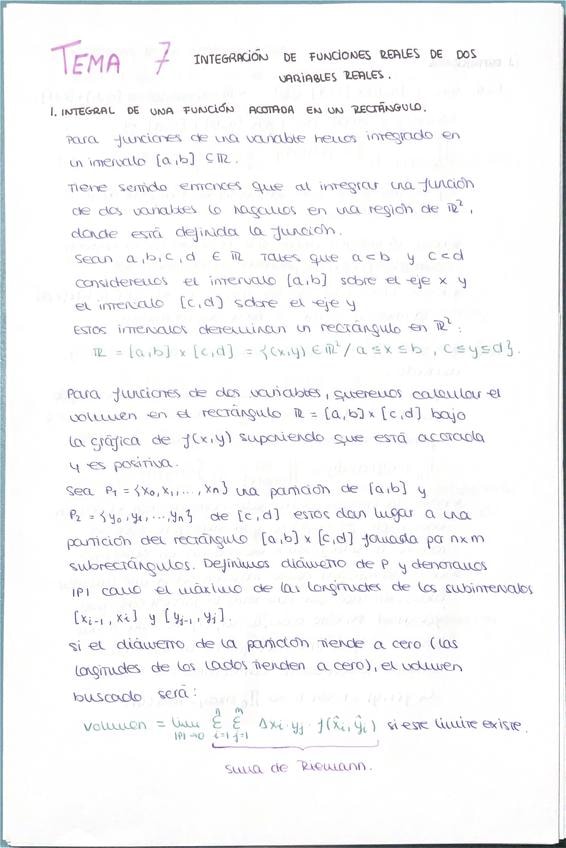 TEMA 7 INTEGRACIÓN DE FUNCIONES REALES DE DOS
VARIABLES REALES.
1. INTEGRAL DE UNA FUNCIÓN ACOTADA EN UN RECTÁNGULO.
Para funciones de una variable hemos integrado en
un intervalo [a,b] ⊆ ℝ.
Tiene sentido entonces que al integrar una función
de dos variables lo hagamos en una región de ℝ²,
donde está definida la función.
Sean a,b,c,d ∈ ℝ tales que a<b y c<d
consideremos el intervalo [a,b] sobre el eje x y
el intervalo [c,d] sobre el eje y
Estos intervalos determinan un rectángulo en ℝ²:
ℝ = [a,b] x [c,d] = {(x,y) ∈ ℝ² / a ≤ x ≤ b , c ≤ y ≤ d}.
Para funciones de dos variables, queremos calcular el
volumen en el rectángulo ℝ = [a,b] x [c,d] bajo
la gráfica de f(x,y) suponiendo que está acotada
y es positiva.
Sea P₁ = {x₀, x₁, ..., xn} una partición de [a,b] y
P₂ = {y₀, y₁, ..., yn} de [c,d] estos dan lugar a una
partición del rectángulo [a,b] x [c,d] formada por n x m
subrectángulos. Definimos diámetro de P y denotamos
|P| como el máximo de las longitudes de los subintervalos
[xi-1, xi] y [yj-1, yj].
si el diámetro de la partición tiende a cero (las
longitudes de los lados tienden a cero), el volumen
buscado será:
volumen = lim |P|→0 Σ i=1 n Σ j=1 m Δxi · yj · f(x̂i, ŷj) si este límite existe.
suma de Riemann.